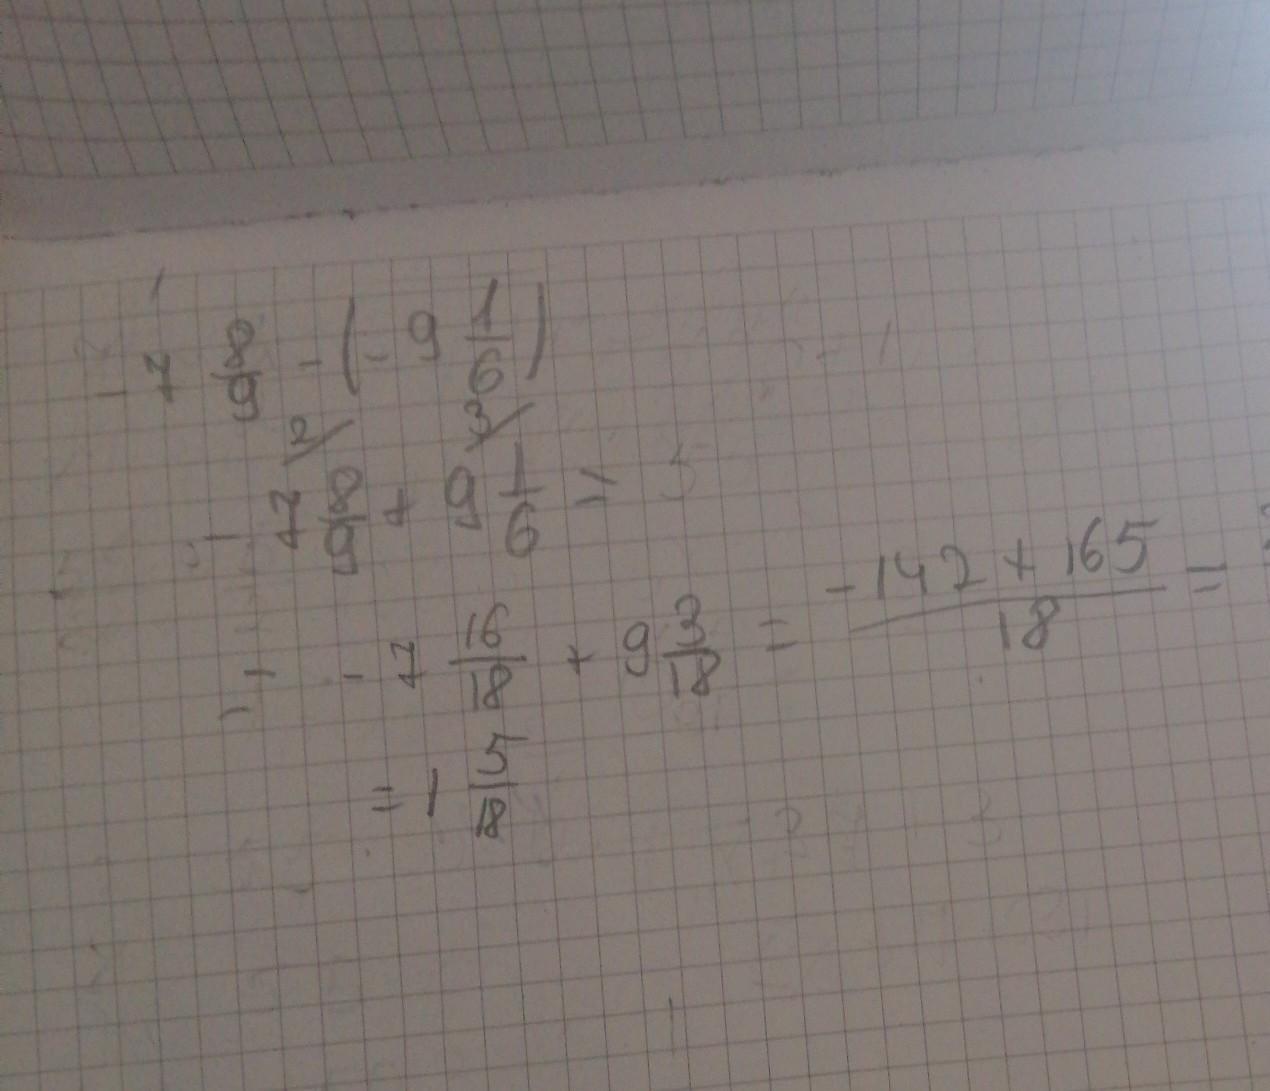 - 7 8/9 - (- 9 1/6)
2/ 3/
- 7 8/9 + 9 1/6 =
= - 7 16/18 + 9 3/18 = -142 + 165/18 =
= 1 5/18